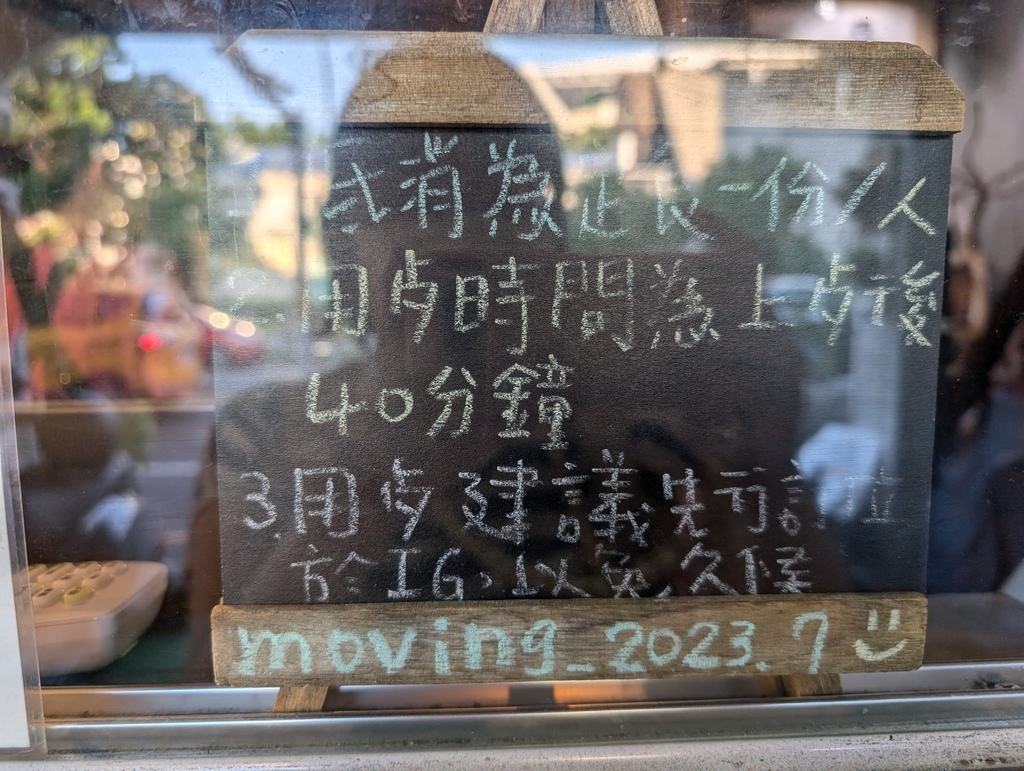 消為 一份/人
2. 用歺時間為上歺後
40分鐘
3.用歺建議先可訂位
於IG,以免久候
moving_2023.7